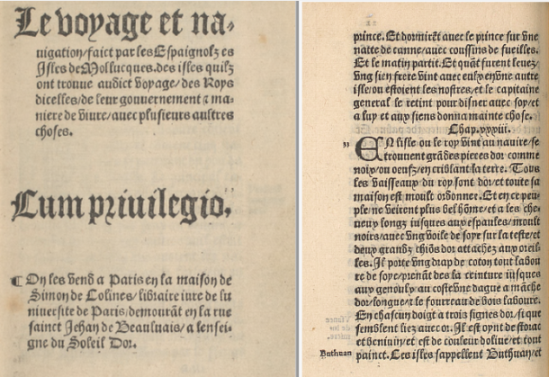 Le voyage et na-
uigation/faict par les Espaignolz es
Isles de Mollucques.des isles quilz
ont trouue audict voyage/des Roys
dicelles/de leur gouuernement & ma
niere de viure/auec plusieurs aultres
choses.
Cum priuilegio.
¶ On les vend a Paris en la maison de
Simon de Colines/libraire iure de lu
niuersite de Paris/demourãt en la rue
sainct Jehan de Beauluais/a lensei-
gne du Soleil Dor.
prince. Et dormirẽt auec le prince sur vne
natte de canne/auec coussins de fueilles.
Et le matin partit. Et quãt furent leuez/
vng sien frere vint auec eulx en vne autre
isle/ou estoient les nostres/et le capitaine
general le retint pour disner auec soy/et
a luy et aux siens donna mainte chose.
Chap.xxxiii.
EN lisle ou le roy vint au nauire/se
trouuent grãdes pieces dor comme
noix/ou oeufz/en criblant la terre. Tous
les vaisseaux du roy sont dor/et toute sa
maison est moult ordonnee. Et en ce peu-
ple/ne veirent plus bel hõme/et a les che
ueux longz iusques aux espaules/moult
noirs/auec vng voile de soye sur la teste/et
deux grandz chiõs dor attachez aux oreil
les. Il porte vng drap de coton tout labou
re de soye/prenãt des la ceinture iusques
aux genoulx/au costé vne dague a mãche
dor/longue/le fourreau de bois laboure.
En chascun doigt a trois signes dor/si que
semblent liez auec or. Il est oynt de storac
et beniuin/et est de couleur doliue/et tout
Buthuan painct. Ces isles sappellent Buthuan/et